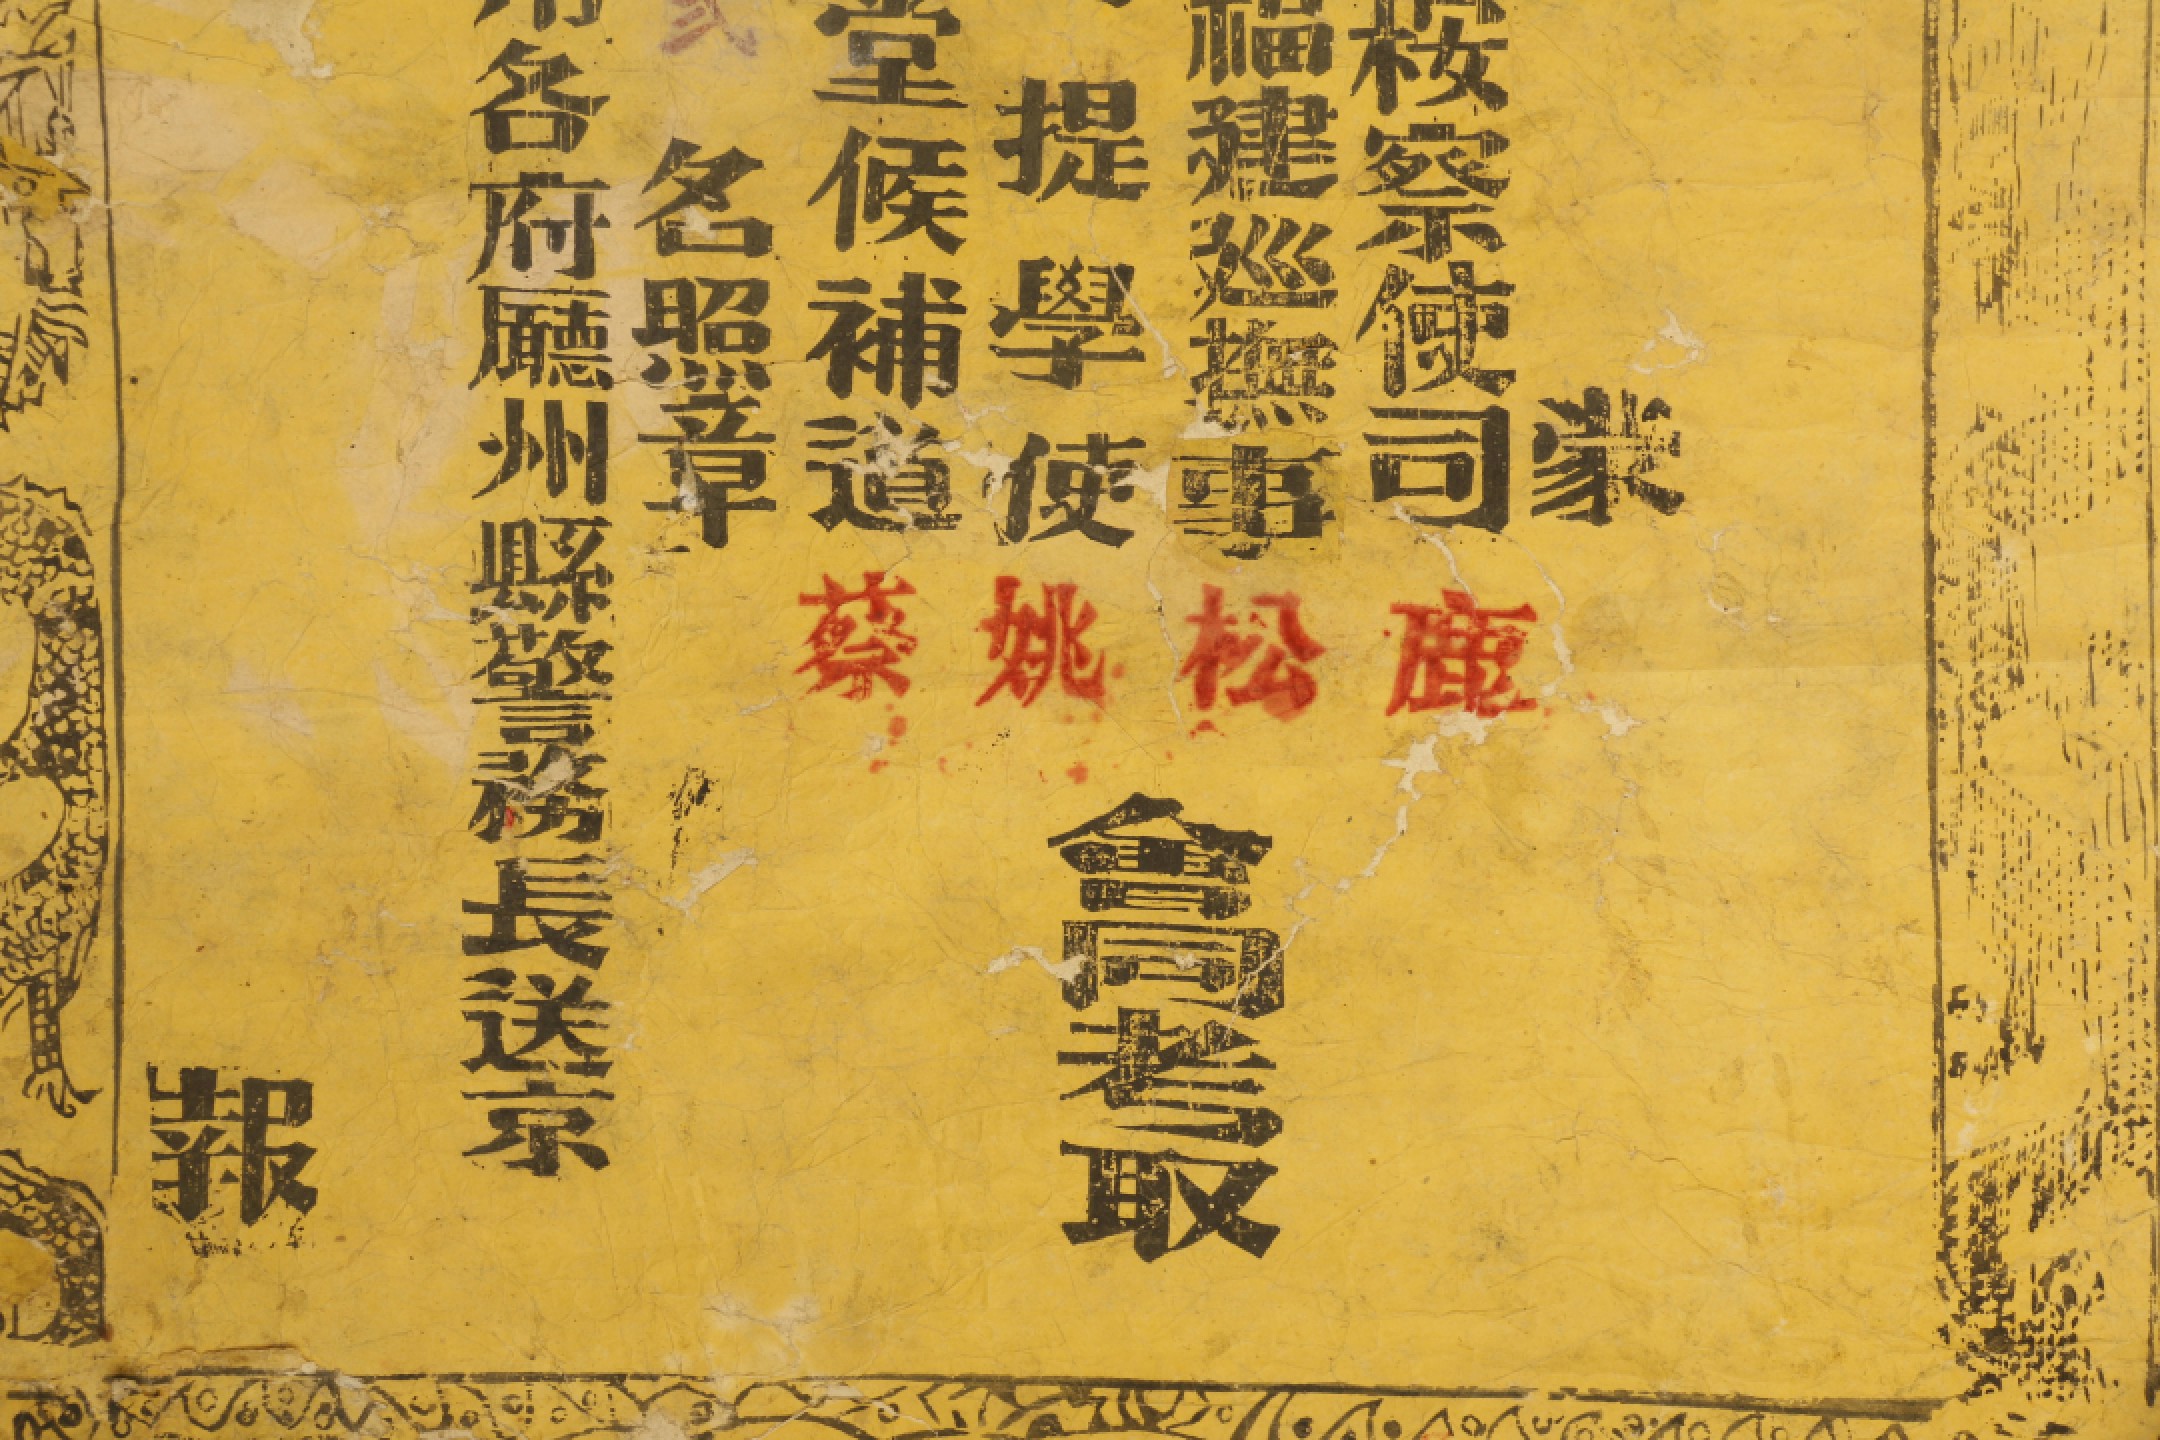 蒙
按察使司鹿
福建巡撫事松
提學使姚
會同考取
堂候補道蔡
名照章
各府廳州縣警務長送京
報